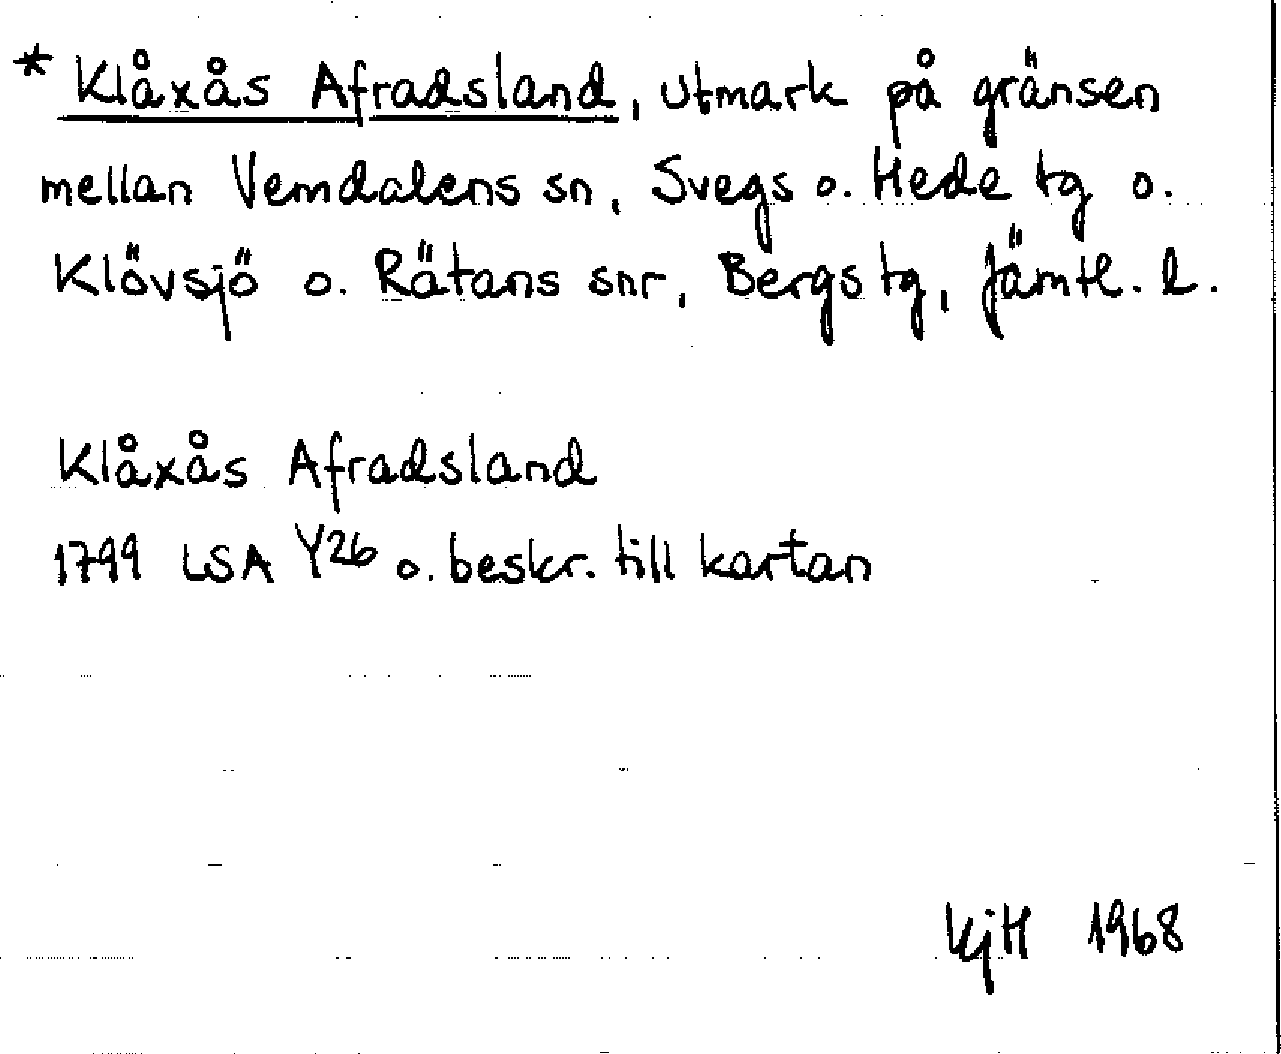 * Klåxås Afradsland, utmark på gränsen
mellan Vemdalens sn, Svegs o. Hede tg o.
Klövsjö o. Rätans snr, Bergs tg, Jämtl. l.
Klåxås Afradsland
1799 LSA Y26 o. beskr. till kartan
KjH 1968